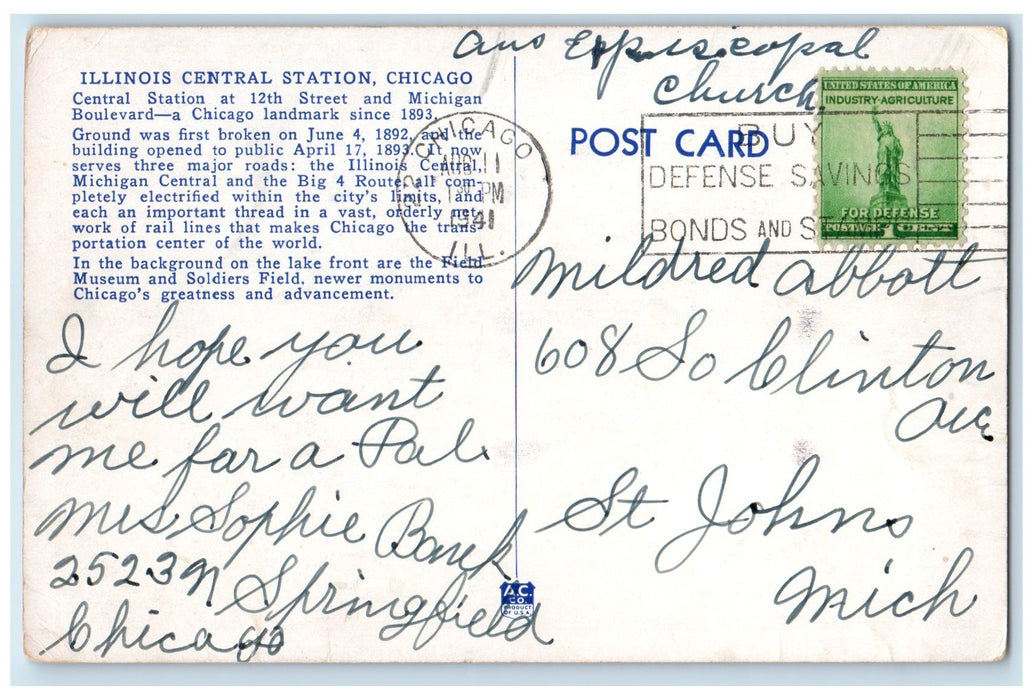 ans Eppiscopal
Church
ILLINOIS CENTRAL STATION, CHICAGO
Central Station at 12th Street and Michigan
Boulevard—a Chicago landmark since 1893.
Ground was first broken on June 4, 1892, and the
building opened to public April 17, 1893. It now
serves three major roads: the Illinois Central,
Michigan Central and the Big 4 Route, all com-
pletely electrified within the city's limits, and
each an important thread in a vast, orderly net-
work of rail lines that makes Chicago the trans-
portation center of the world.
In the background on the lake front are the Field
Museum and Soldiers Field, newer monuments to
Chicago's greatness and advancement.
I hope you
will want
me for a Pal.
Mrs Sophie
2523 N Springfield
Chicago
CHICAGO
11
PM
1941
ILL.
POST CARD
BUY
DEFENSE SAVINGS
BONDS AND
UNITED STATES OF AMERICA
INDUSTRY-AGRICULTURE
FOR DEFENSE
POSTAGE 1 CENT
Mildred Abbott
608 So Clinton
Ave
St Johns
Mich
A.C.
CO.
PRODUCT
OF U.S.A.